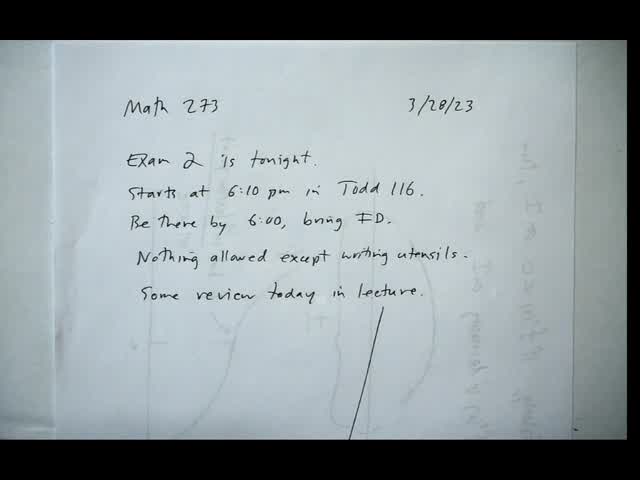 Math 273 3/28/23
Exam 2 is tonight.
Starts at 6:10 pm in Todd 116.
Be there by 6:00, bring ID.
Nothing allowed except writing utensils.
Some review today in lecture.